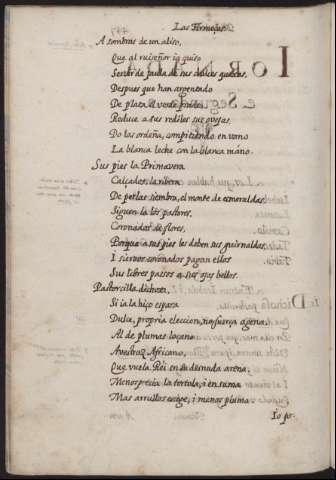 Las Firmezas.
A sombras de un aliso,
Que al ruiseñor ia quiso
Servir de jaula de sus dulces quexas,
Despues que han argentado
De plata el verde prado,
Reduce a sus rediles sus ovejas.
Do las ordeña, compitiendo en vano
La blanca leche con la blanca mano.
Sus pies la Primavera
Calçados, la ribera
De perlas siembra, el monte de esmeraldas.
Siguenla los pastores,
Coronados de flores,
Porque a sus pies les deben sus guirnaldas.
I siervos coronados pagan ellos
Sus libres passos a sus ojos bellos.
Pastorcilla dichosa,
Si ia la hiço esposa
Dulce, propria eleccion, no fuerça agena.
Al de plumas loçano
Avestruz Africano,
Que vuela Rei en su desnuda arena,
Menosprecia la tortola, i en suma
Mas arrullos escoge, i menos pluma.